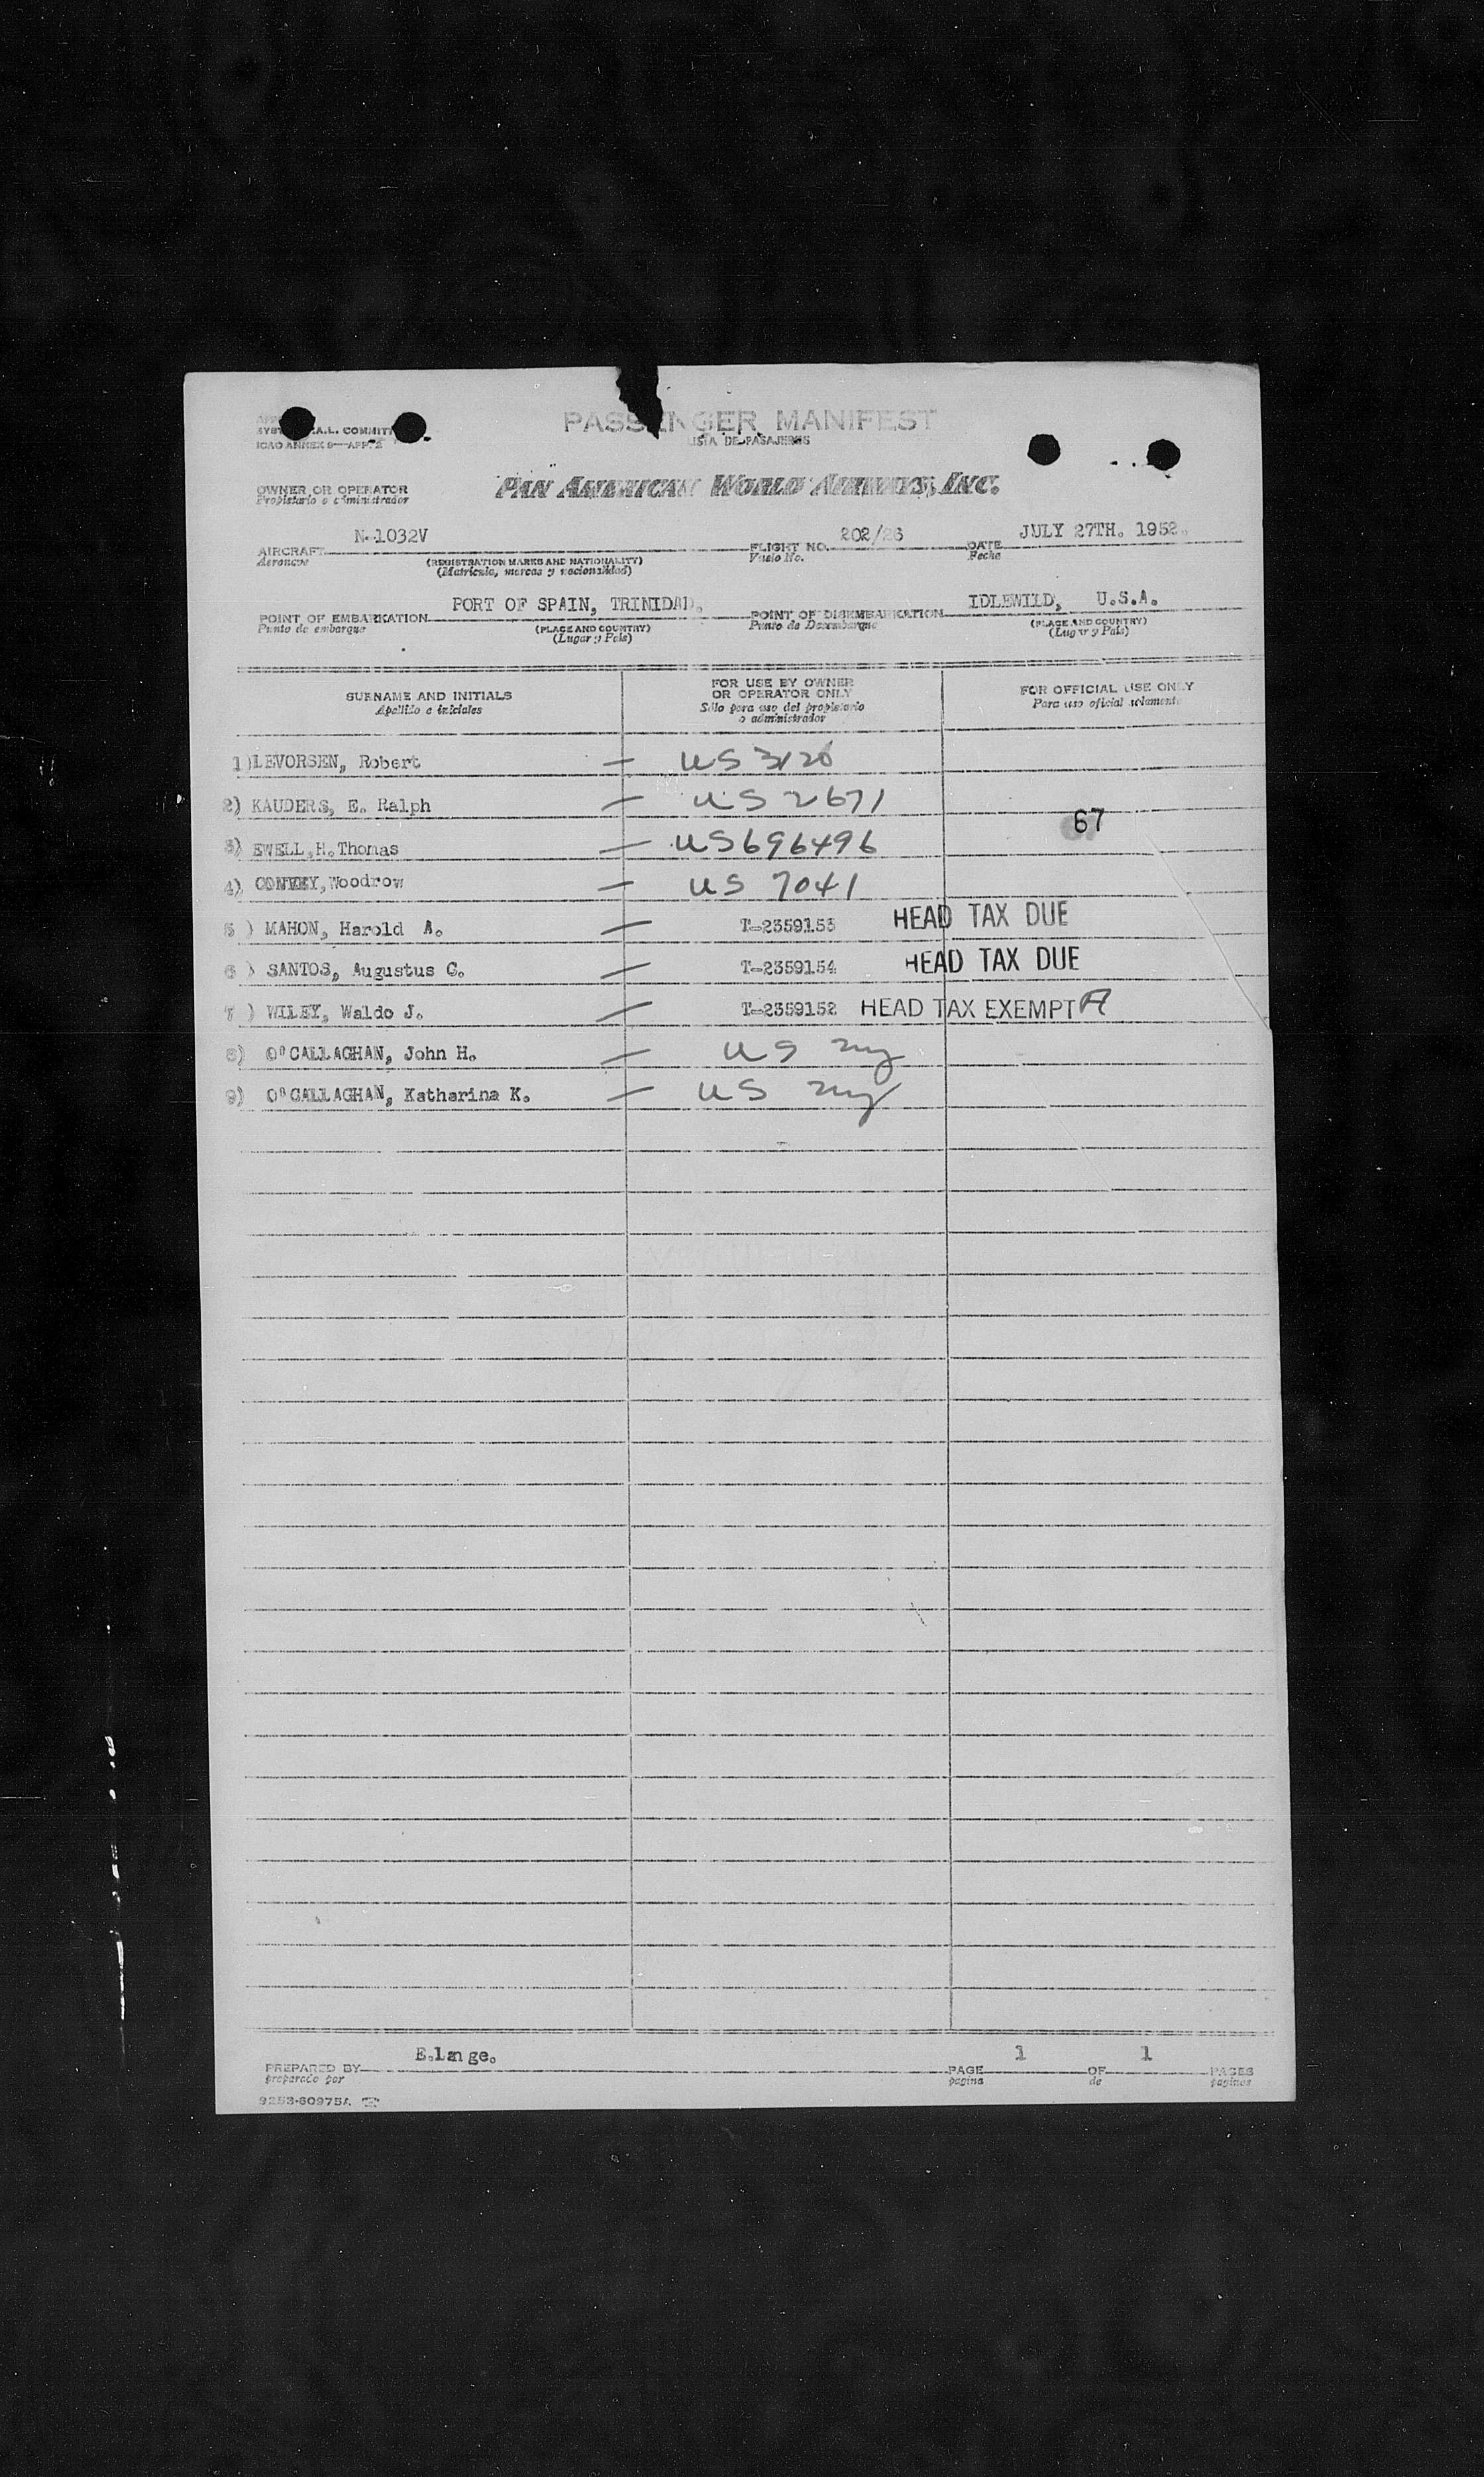 PASSENGER MANIFEST
LISTA DE PASAJEROS
A.L. COMMITT
ICAO ANNEX 9—APP. 2
OWNER OR OPERATOR PAN AMERICAN WORLD AIRWAYS, INC.
Propietario o administrador
N-1032V 202/26 JULY 27TH. 1952.
AIRCRAFT FLIGHT NO. DATE
Aeronave (REGISTRATION MARKS AND NATIONALITY) Vuelo No. Fecha
(Matricula, marcas y nacionalidad)
PORT OF SPAIN, TRINIDAD. IDLEWILD, U.S.A.
POINT OF EMBARKATION POINT OF DISEMBARKATION
Punto de embarque (PLACE AND COUNTRY) Punto de Desembarque (PLACE AND COUNTRY)
(Lugar y Pais) (Lugar y Pais)
SURNAME AND INITIALS FOR USE BY OWNER OR OPERATOR ONLY FOR OFFICIAL USE ONLY
Apellido e iniciales Sólo para uso del propietario o administrador Para uso oficial solamente
1) LEVORSEN, Robert — US 3120
2) KAUDERS, E. Ralph — US 2671
67
3) EWELL, H. Thomas — US 696496
4) Woodrow — US 7041
5 ) MAHON, Harold A. — T-2359153 HEAD TAX DUE
6 ) SANTOS, Augustus C. — T-2359154 HEAD TAX DUE
7 ) WILEY, Waldo J. — T-2359152 HEAD TAX EXEMPT A
8) O'CALLAGHAN, John H. — US ny
9) O'CALLAGHAN, Katharina K. — US ny
E.lange. 1 1
PREPARED BY PAGE OF PAGES
preparado por pagina de paginas
9253-60975A